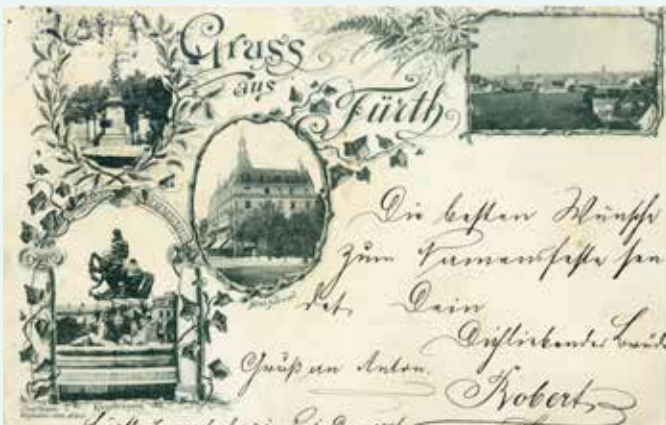 Gruss
aus
Fürth
Die besten Wünsche
zum Namensfeste sen
det Dein
Dichliebender Brude
Gruß an Anton.
Robert